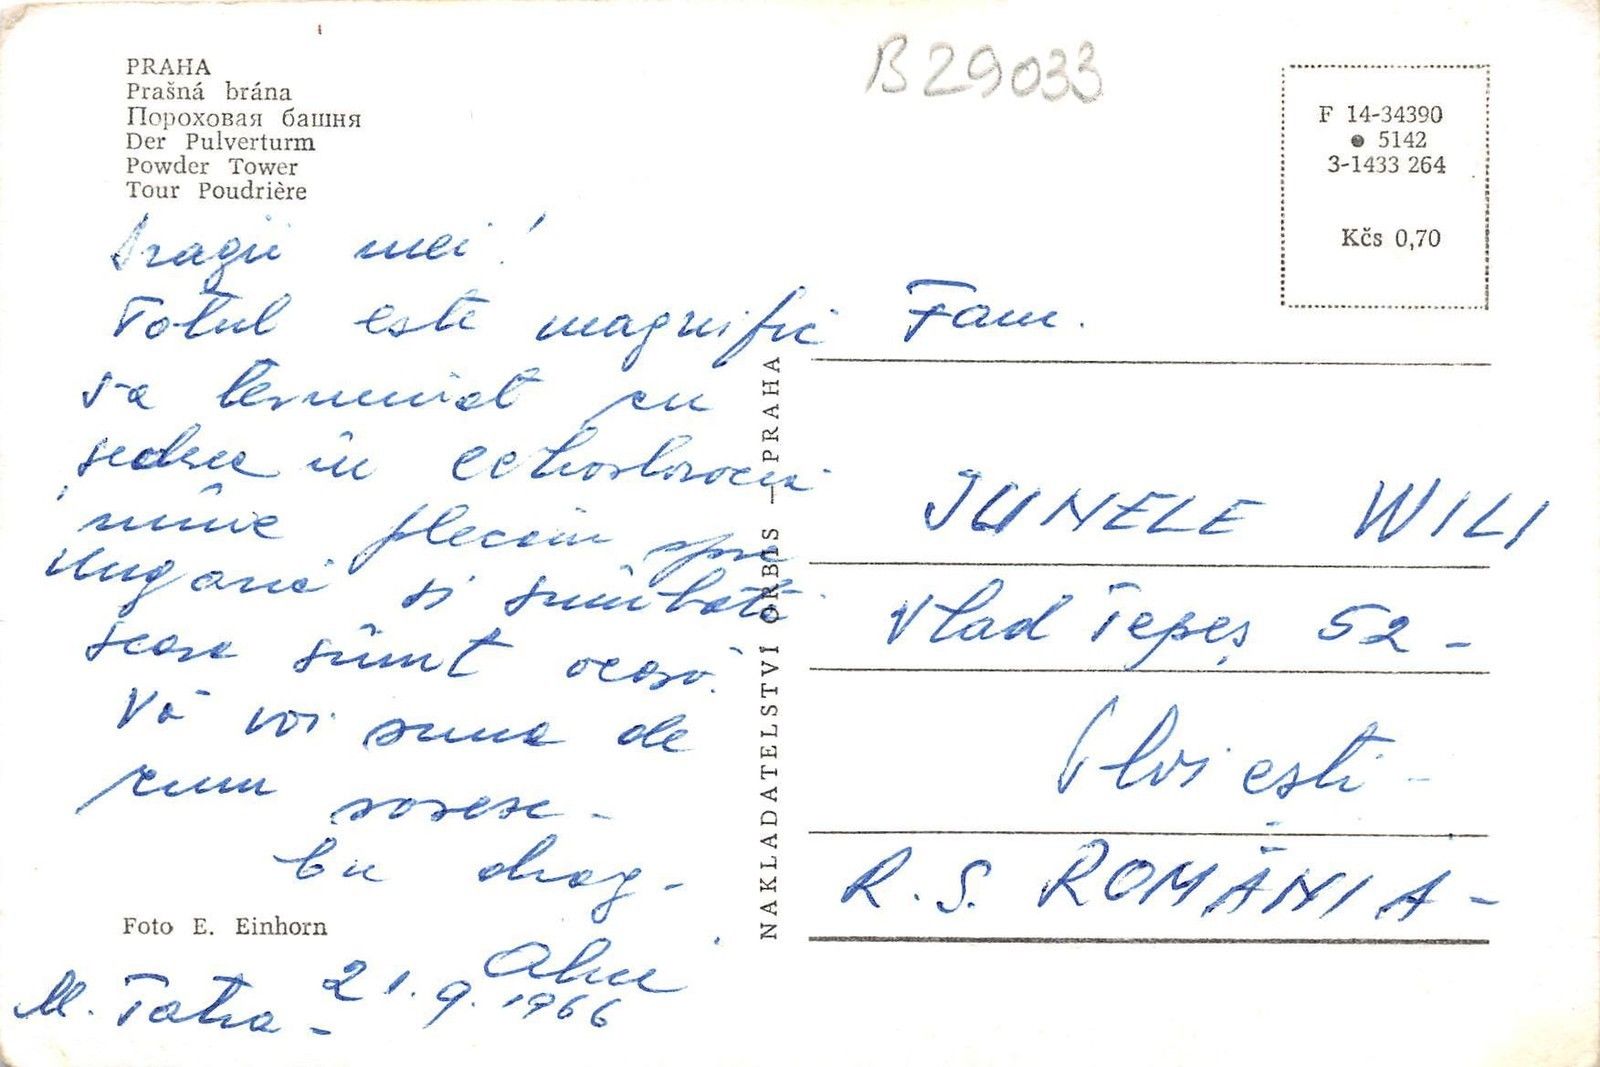 B29033
PRAHA
Prašná brána
Пороховая башня
Der Pulverturm
Powder Tower
Tour Poudrière
F 14-34390
● 5142
3-1433 264
Kčs 0,70
Dragii mei!
Totul este magnific
s-a terminat cu
șederea în Cehoslovacia
mîine plecăm spre
Ungaria și sîmbătă
seara sûnt acasă.
Vă voi suna de
cum sosesc -
Cu drag -
Foto E. Einhorn
M. Tatra - 21.9.1966
NAKLADATELSTVÍ ORBIS — PRAHA
Fam.
JUNELE WILI
Vlad Țepeș 52 -
Ploiești -
R. S. ROMÂNIA -